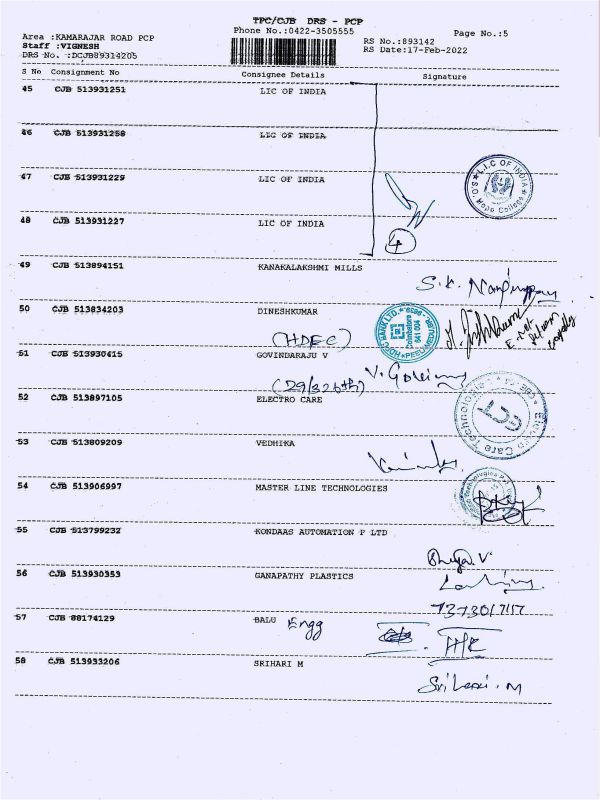 TPC/CJB DRS - PCP
Phone No.:0422-3505555
Page No.:5
Area :KAMARAJAR ROAD PCP
Staff :VIGNESH
DRS No. :DCJB89314205
RS No.:893142
RS Date:17-Feb-2022
S No Consignment No Consignee Details Signature
45 CJB 513931251 LIC OF INDIA
46 CJB 513931258 LIC OF INDIA
47 CJB 513931229 LIC OF INDIA
L.I.C OF INDIA
48 CJB 513931227 LIC OF INDIA
4
49 CJB 513894151 KANAKALAKSHMI MILLS
50 CJB 513834203 DINESHKUMAR
(HDFC)
HDFC BANK LTD.
Coimbatore
641 004
PEELAMEDU BR.
51 CJB 513930415 GOVINDARAJU V
(29/326th)
52 CJB 513897105 ELECTRO CARE
53 CJB 513809209 VEDHIKA
54 CJB 513906997 MASTER LINE TECHNOLOGIES
55 CJB 513799232 KONDAAS AUTOMATION P LTD
56 CJB 513930353 GANAPATHY PLASTICS
57 CJB 88174129 BALU Engg
58 CJB 513933206 SRIHARI M
Srihari.M